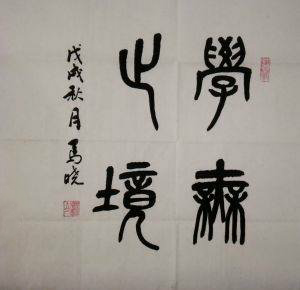 學無
止境
戊戌秋月馬曉